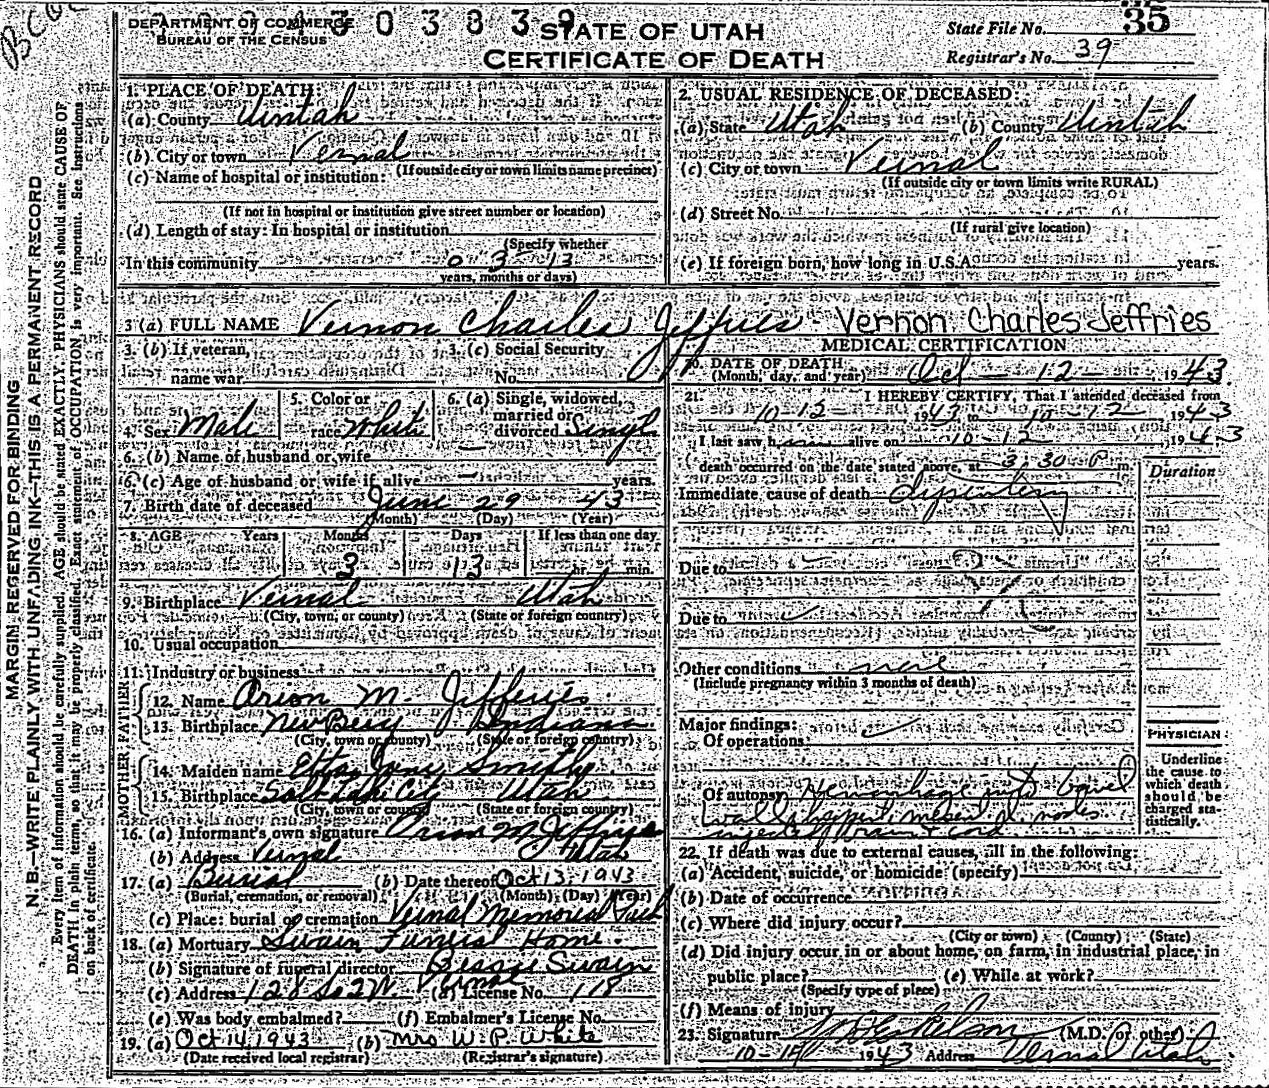 DEPARTMENT OF COMMERCE
BUREAU OF THE CENSUS
STATE OF UTAH
CERTIFICATE OF DEATH
State File No. 35
Registrar's No. 39
MARGIN RESERVED FOR BINDING
N. B.—WRITE PLAINLY WITH UNFADING INK—THIS IS A PERMANENT RECORD
Every item of information should be carefully supplied. AGE should be stated EXACTLY. PHYSICIANS should state CAUSE OF
DEATH in plain terms, so that it may be properly classified. Exact statement of OCCUPATION is very important. See instructions
on back of certificate.
1. PLACE OF DEATH:
(a) County Uintah
(b) City or town Vernal
(If outside city or town limits name precinct)
(c) Name of hospital or institution:
(If not in hospital or institution give street number or location)
(d) Length of stay: In hospital or institution
(Specify whether
In this community 0 3 13
years, months or days)
2. USUAL RESIDENCE OF DECEASED:
(a) State Utah (b) County Uintah
(c) City or town Vernal
(If outside city or town limits write RURAL)
(d) Street No.
(If rural give location)
(e) If foreign born, how long in U.S.A. years.
3 (a) FULL NAME Vernon Charles Jeffries - Vernon Charles Jeffries
3. (b) If veteran, name war
3. (c) Social Security No.
4. Sex Male
5. Color or race White
6. (a) Single, widowed, married or divorced Singl
6. (b) Name of husband or wife
6. (c) Age of husband or wife if alive — years.
7. Birth date of deceased June 29 43
(Month) (Day) (Year)
8. AGE Years Months Days If less than one day
3 13 hr. min.
9. Birthplace Vernal Utah
(City, town, or county) (State or foreign country)
10. Usual occupation
11. Industry or business
FATHER
12. Name Orion M. Jefferies
13. Birthplace NewBery Indiana
(City, town or county) (State or foreign country)
MOTHER
14. Maiden name Etta June Smith
15. Birthplace Salt Lake City Utah
(City, town or county) (State or foreign country)
16. (a) Informant's own signature Orion M Jeffries
(b) Address Vernal Utah
17. (a) Burial (b) Date thereof Oct 13, 1943
(Burial, cremation, or removal) (Month) (Day) (Year)
(c) Place: burial or cremation Vernal Memorial Park
18. (a) Mortuary Swain Funeral Home.
(b) Signature of funeral director Swain
(c) Address 128 So 2 W. Vernal (d) License No. 118
(e) Was body embalmed? (f) Embalmer's License No.
19. (a) Oct 14, 1943 (b) Mrs W. P. White
(Date received local registrar) (Registrar's signature)
MEDICAL CERTIFICATION
20. DATE OF DEATH
(Month, day, and year) Oct — 12 — , 1943.
21. I HEREBY CERTIFY, That I attended deceased from
10-12 1943 10-12 , 1943
I last saw him alive on 10-12 , 1943
death occurred on the date stated above, at 3:30 P m.
Duration
Immediate cause of death dysentery
Due to
Due to
Other conditions none
(Include pregnancy within 3 months of death)
Major findings:
Of operations:
PHYSICIAN:
Underline
the cause to
which death
should be
charged sta-
tistically.
Of autopsy Hemorhage into bowel
wall nodes
injected brain + cord
22. If death was due to external causes, fill in the following:
(a) Accident, suicide, or homicide (specify)
(b) Date of occurrence
(c) Where did injury occur?
(City or town) (County) (State)
(d) Did injury occur in or about home, on farm, in industrial place, in
public place? (e) While at work?
(Specify type of place)
(f) Means of injury
23. Signature (M.D. or other)
10-14 1943 Address Vernal Utah